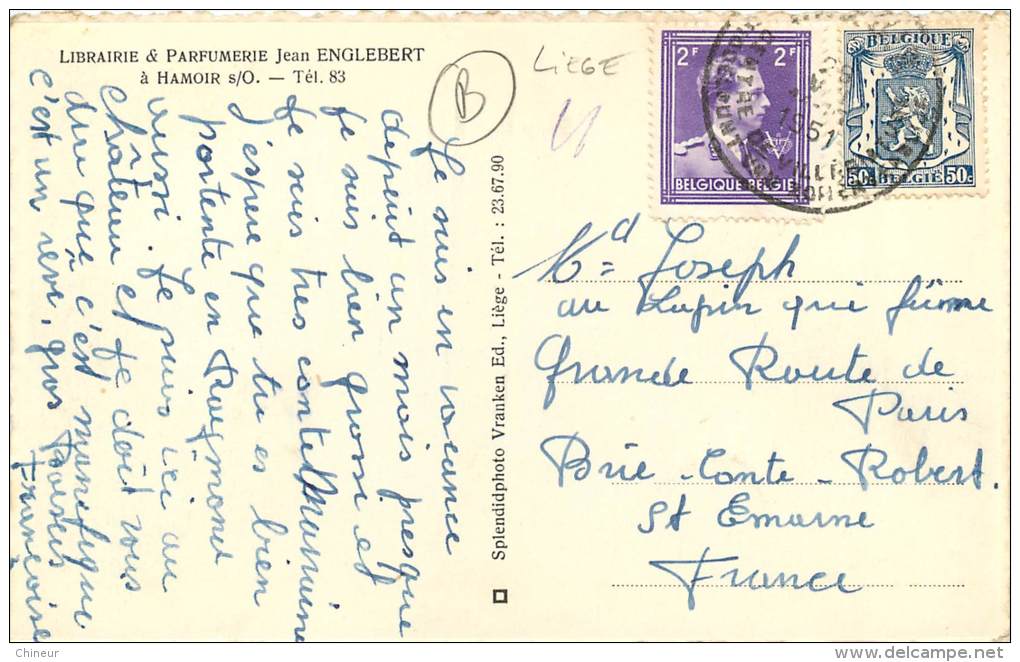 LIBRAIRIE & PARFUMERIE Jean ENGLEBERT
à HAMOIR s/O. — Tél. 83
B
LIEGE
2F 2F
BELGIQUE-BELGIE
BELGIQUE
50c BELGIË 50c
1951
Je suis en vacance
depuit un mois presque
Je suis bien grosse et
Je suis tres conte Mamine
J'espere que tu es bien
portente en Rougmont
aussi. Je suis ici au
château et Je doit vous
dire que c'est munefique
c'est un reve, gros Baisers
Françoise
Splendidphoto Vranken Ed., Liège - Tél. : 23.67.90
Md Joseph
au Lapin qui fûme
Grande Route de
Paris
Brie-Conte-Robert.
St Emarne
France
Chineur
www.delcampe.net